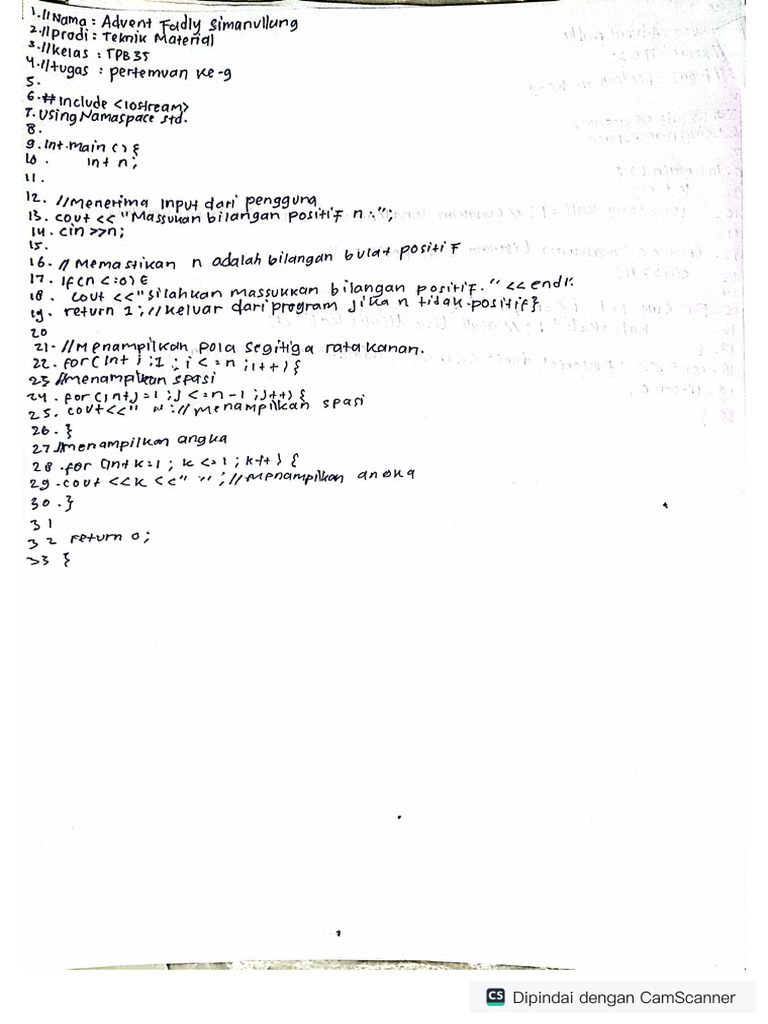 1.//Nama : Advent Fadly Simanullung
2.//Prodi : Teknik Material
3.//Kelas : TPB 35
4.//tugas : pertemuan ke-9
5.
6.#Include <iostream>
7. Using Namaspace std.
8.
9. Int.main () {
10. int n;
11.
12. //Menerima Input dari pengguna
13. cout << "Massukan bilangan positif n : ";
14. cin >>n;
15.
16. // Memastikan n adalah bilangan bulat positif
17. If (n <=0) {
18. cout <<"silahkan massukkan bilangan positif." << endl;
19. return 1; //keluar dari program jika n tidak positif}
20
21- //Menampilkan pola segitiga rata kanan.
22. for (Int j ;1 ; i <= n ; i++) {
23 //menampilkan spasi
24. for (int j=1 ; j <= n-1 ; j++) {
25. cout<<" " ; //menampilkan spasi
26. }
27 //menampilkan angka
28. for (Int k=1 ; k <=1 ; k++) {
29. cout <<k <<" " ; //menampilkan angka
30. }
31
32 return 0;
33 }
CS Dipindai dengan CamScanner